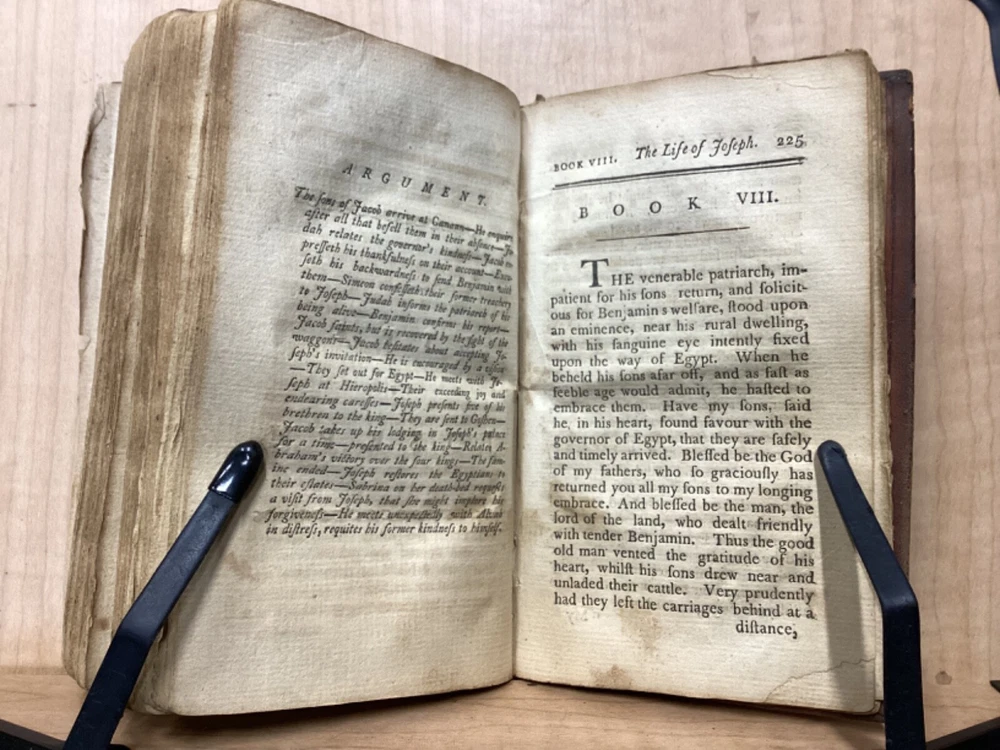 ARGUMENT.
The ſons of Jacob arrive at Canaan—He enquires
after all that befell them in their abſence—Ju-
dah relates the governor's kindneſs—Jacob ex-
preſſeth his thankfulneſs on their account—Excu-
ſeth his backwardneſs to ſend Benjamin with
them—Simeon confeſſeth their former treachery
to Joſeph—Judah informs the patriarch of his
being alive—Benjamin confirms his report—
Jacob faints, but is recovered by the ſight of the
waggons—Jacob heſitates about accepting Jo-
ſeph's invitation—He is encouraged by a viſion
—They ſet out for Egypt—He meets with Jo-
ſeph at Hieropolis—Their exceeding joy and
endearing careſſes—Joſeph preſents five of his
brethren to the king—They are ſent to Goſhen—
Jacob takes up his lodging in Joſeph's palace
for a time—preſented to the king—Relates A-
braham's victory over the four kings—The fam-
ine ended—Joſeph reſtores the Egyptians to
their eſtates—Sabrina on her death-bed requeſts
a viſit from Joſeph, that ſhe might implore his
forgiveneſs—He meets unexpectedly with
in diſtreſs, requites his former kindneſs to himſelf.
BOOK VIII. The Life of Joſeph. 225
BOOK VIII.
THE venerable patriarch, im-
patient for his ſons return, and ſolicit-
ous for Benjamin s welfare, ſtood upon
an eminence, near his rural dwelling,
with his ſanguine eye intently fixed
upon the way of Egypt. When he
beheld his ſons afar off, and as faſt as
feeble age would admit, he haſted to
embrace them. Have my ſons, ſaid
he, in his heart, found favour with the
governor of Egypt, that they are ſafely
and timely arrived. Bleſſed be the God
of my fathers, who ſo graciouſly has
returned you all my ſons to my longing
embrace. And bleſſed be the man, the
lord of the land, who dealt friendly
with tender Benjamin. Thus the good
old man vented the gratitude of his
heart, whilſt his ſons drew near and
unladed their cattle. Very prudently
had they left the carriages behind at a
diſtance,